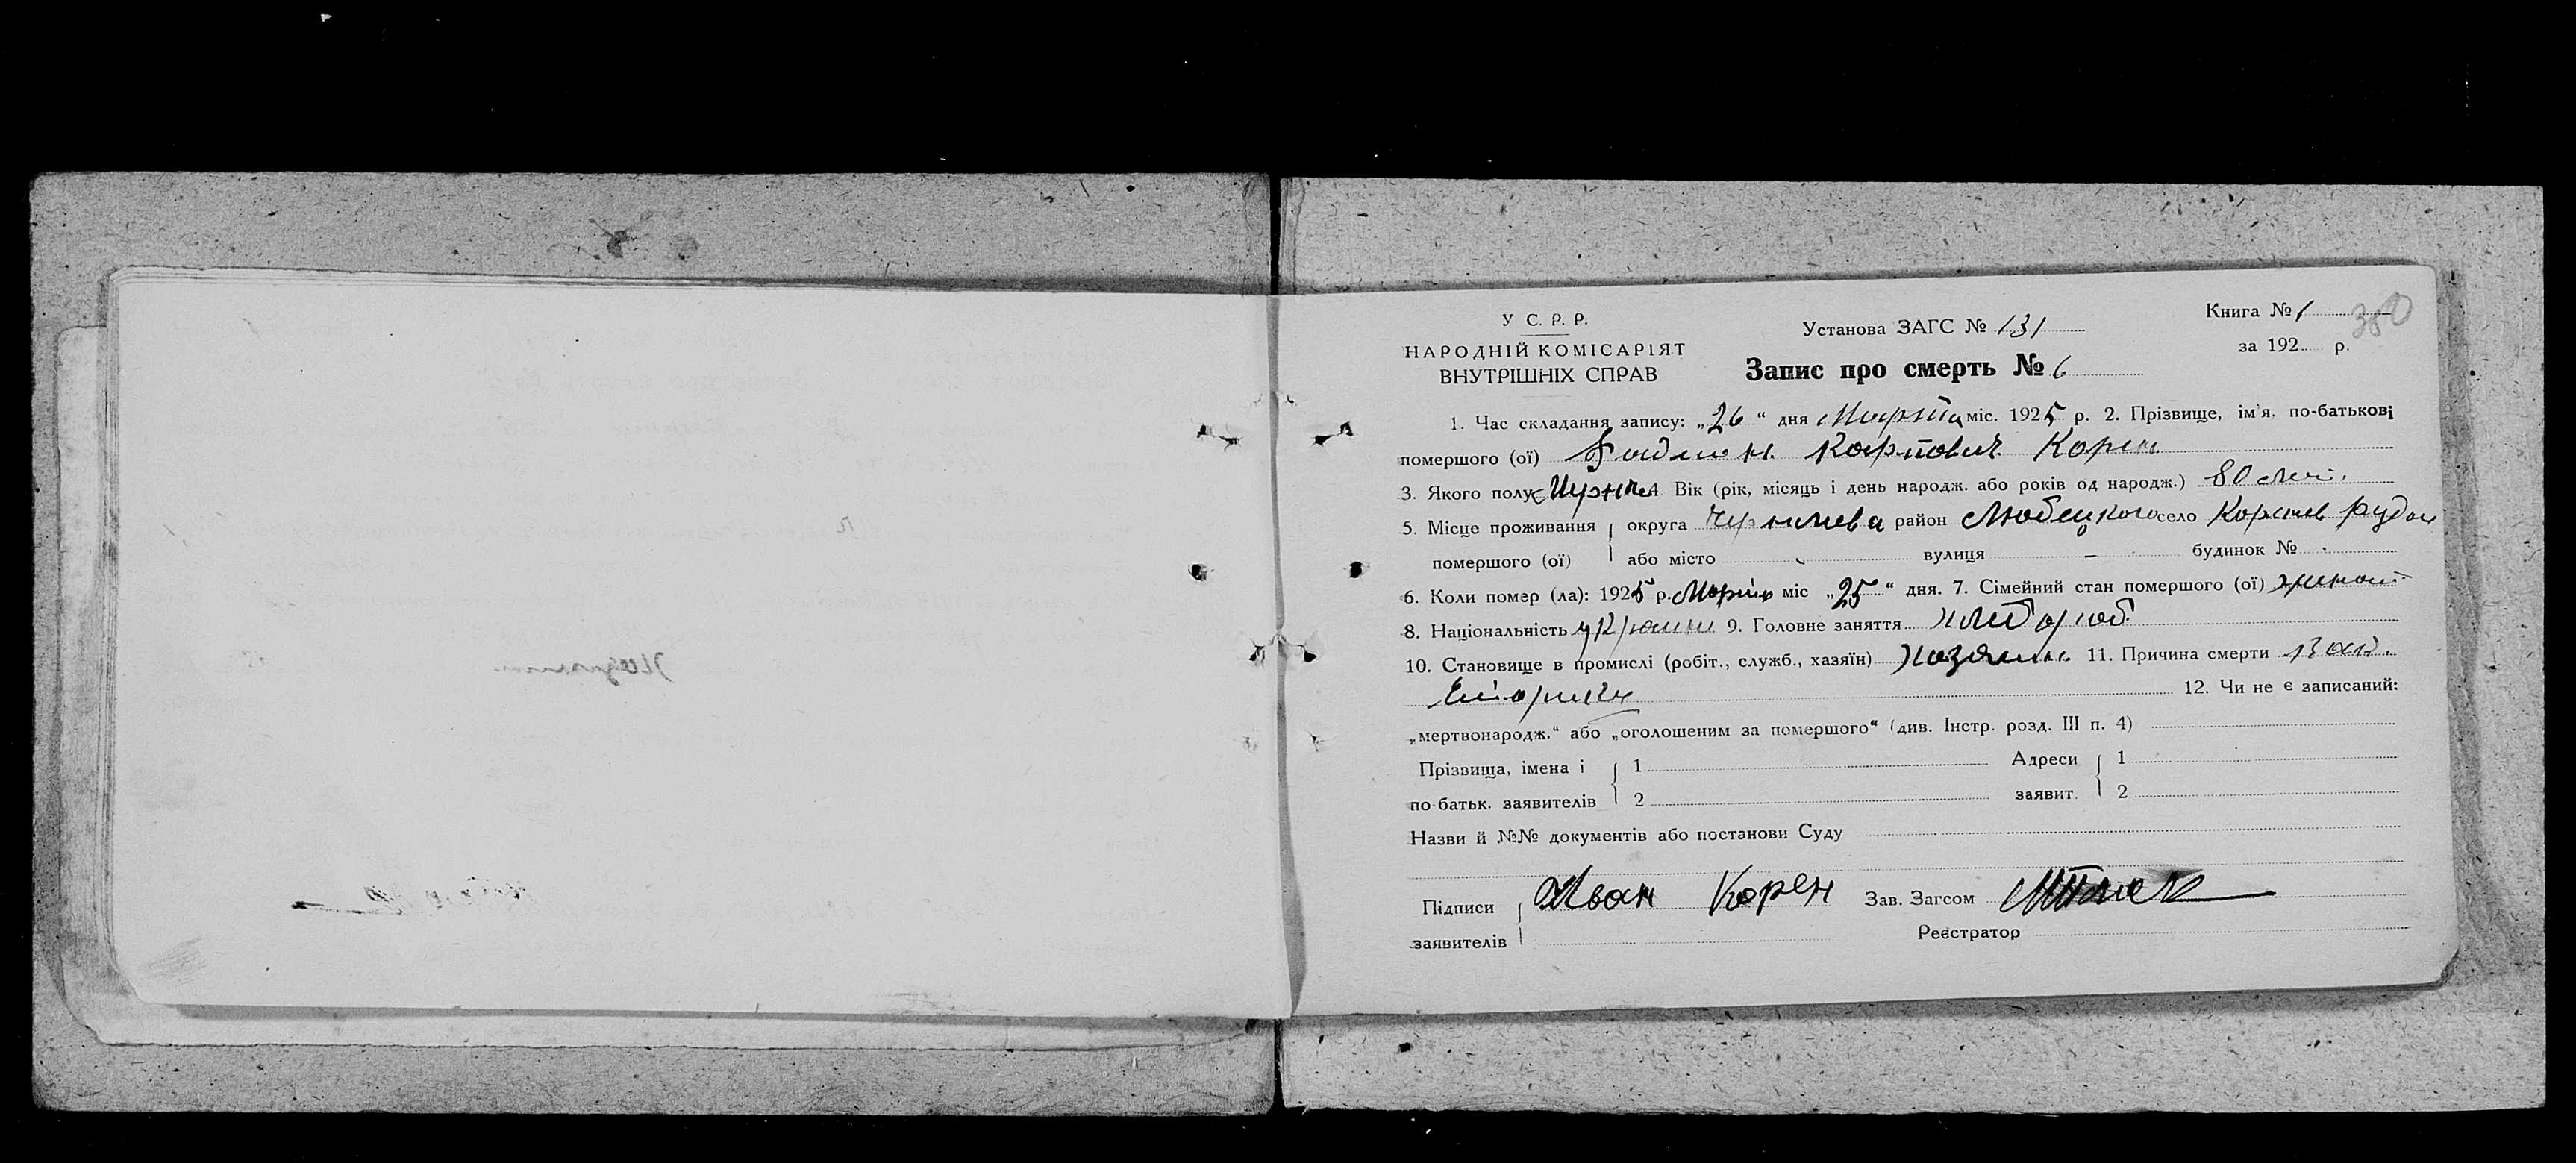 У С. Р. Р.
НАРОДНІЙ КОМІСАРІЯТ
ВНУТРІШНІХ СПРАВ
Установа ЗАГС № 131
Запис про смерть № 6
Книга № 1
380
за 192 р.
1. Час складання запису: „26“ дня Марта міс. 1925 р. 2. Прізвище, ім'я, по-батькові
помершого (ої) Карпович Корен
3. Якого полу 4. Вік (рік, місяць і день народж. або років од народж.) 80 лет.
5. Місце проживання округа район Любецкого село Рудки
помершого (ої) або місто вулиця – будинок №
6. Коли помер (ла): 1925 р. Марта міс „25“ дня. 7. Сімейний стан помершого (ої) женат
8. Національність 9. Головне заняття хлебороб
10. Становище в промислі (робіт., служб., хазяїн) Хозяин 11. Причина смерти
12. Чи не є записаний:
„мертвонародж.“ або „оголошеним за помершого“ (див. Інстр. розд. III п. 4)
Прізвища, імена і 1 Адреси 1
по батьк. заявителів 2 заявит. 2
Назви й №№ документів або постанови Суду
Підписи Иван Корен Зав. Загсом
заявителів Реєстратор